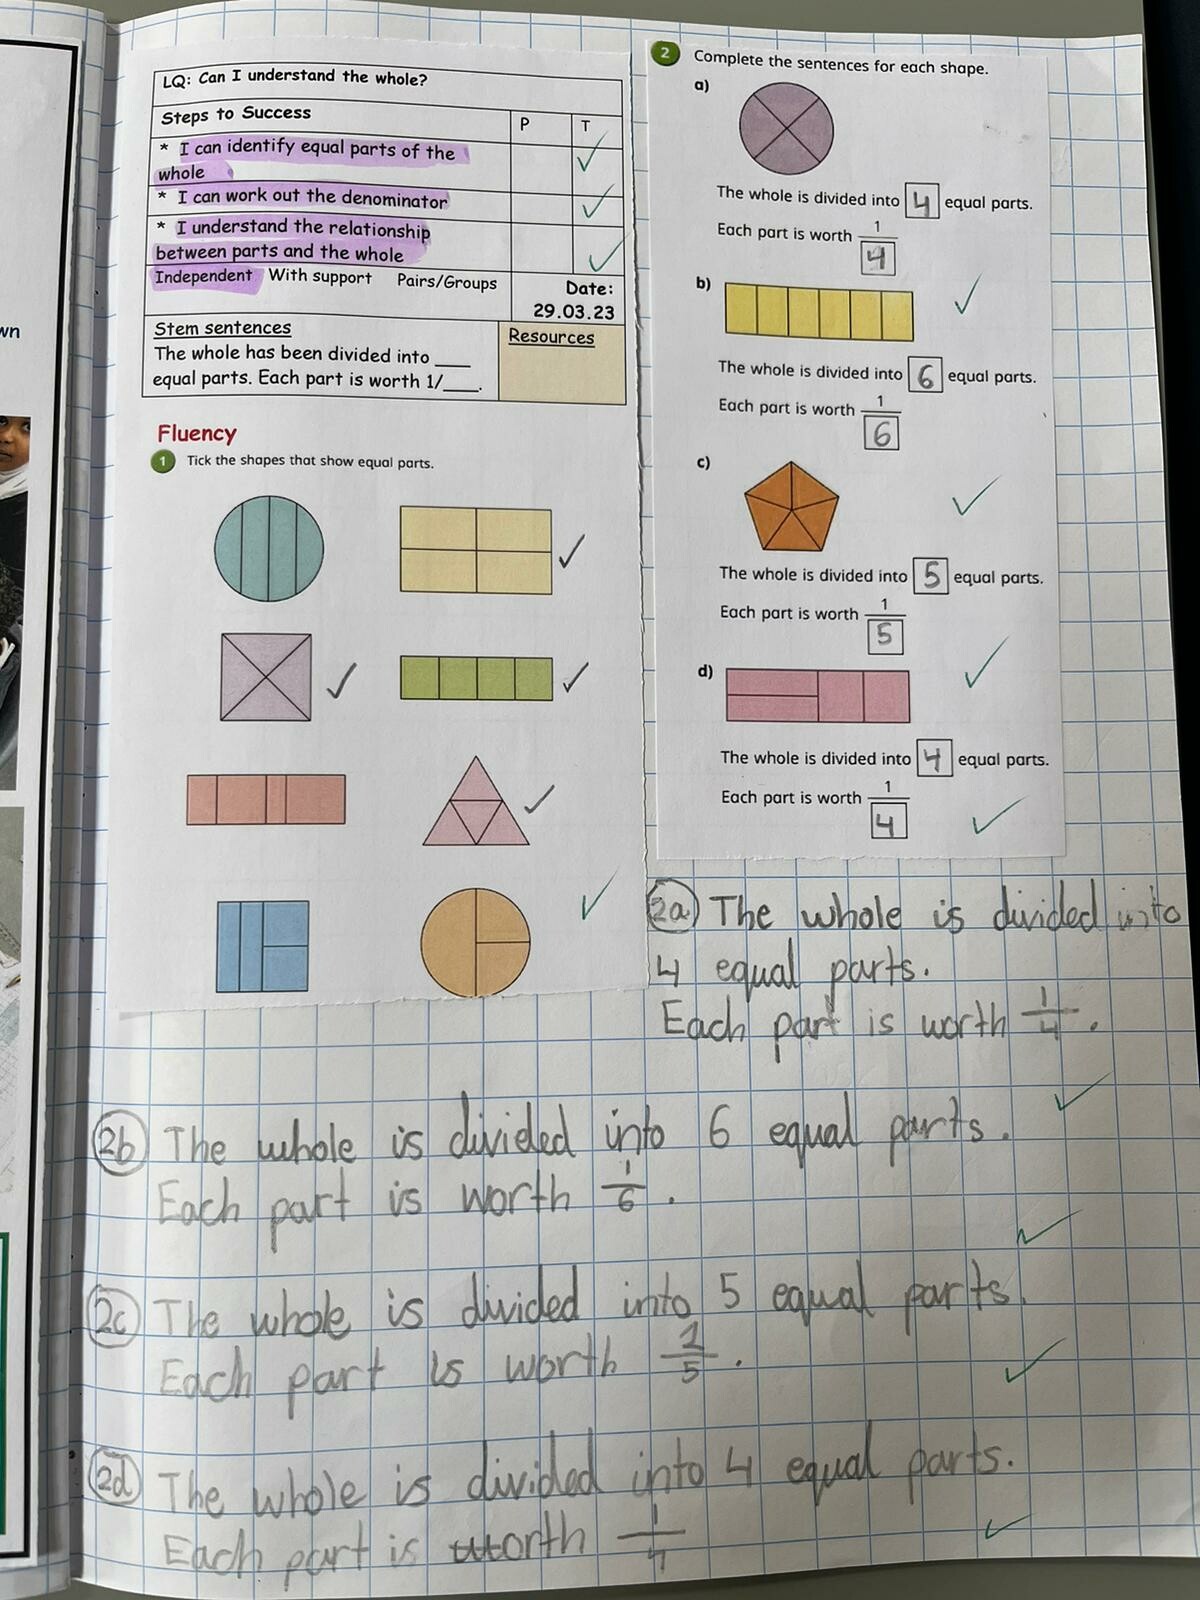 wn
LQ: Can I understand the whole?
Steps to Success
P
T
* I can identify equal parts of the
whole
* I can work out the denominator
* I understand the relationship
between parts and the whole
Independent With support Pairs/Groups
Date:
29.03.23
Stem sentences
The whole has been divided into ____
equal parts. Each part is worth 1/____.
Resources
Fluency
1 Tick the shapes that show equal parts.
2 Complete the sentences for each shape.
a)
The whole is divided into 4 equal parts.
Each part is worth 1/4
b)
The whole is divided into 6 equal parts.
Each part is worth 1/6
c)
The whole is divided into 5 equal parts.
Each part is worth 1/5
d)
The whole is divided into 4 equal parts.
Each part is worth 1/4
2a) The whole is divided into
4 equal parts.
Each part is worth 1/4.
2b) The whole is divided into 6 equal parts.
Each part is worth 1/6.
2c) The whole is divided into 5 equal parts.
Each part is worth 1/5.
2d) The whole is divided into 4 equal parts.
Each part is worth 1/4